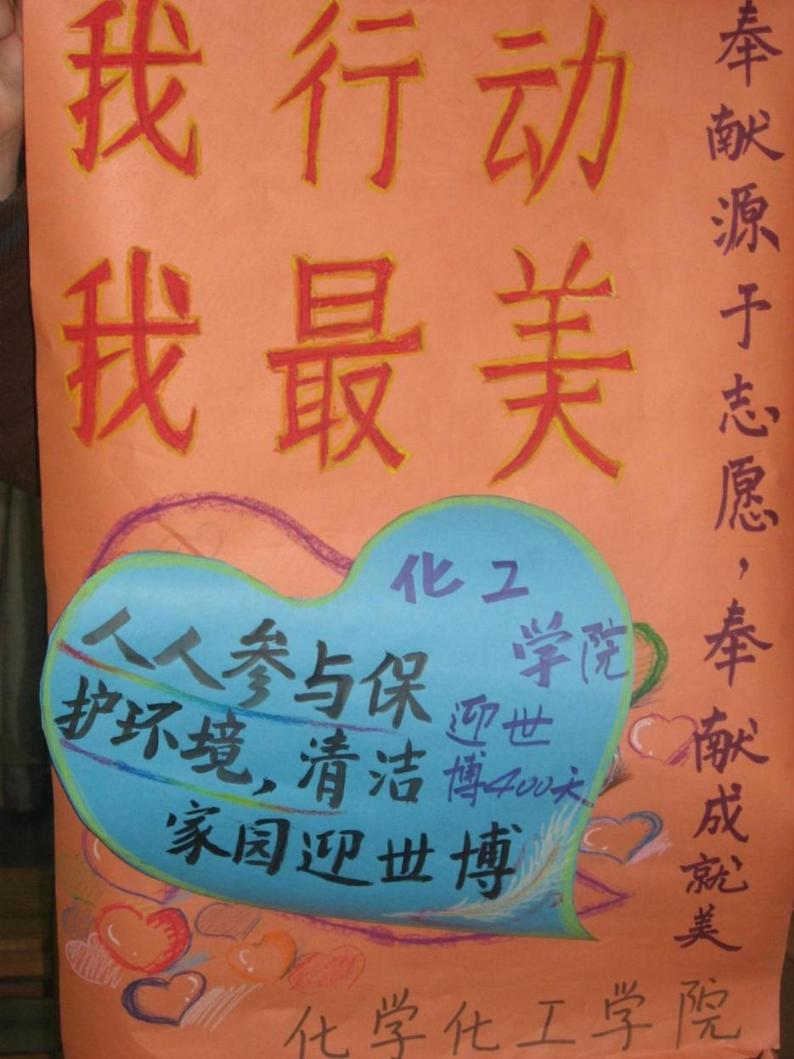 我行动
我最美
奉献源于志愿，奉献成就美
化工
学院
迎世
博400天
人人参与保
护环境，清洁
家园迎世博
化学化工学院